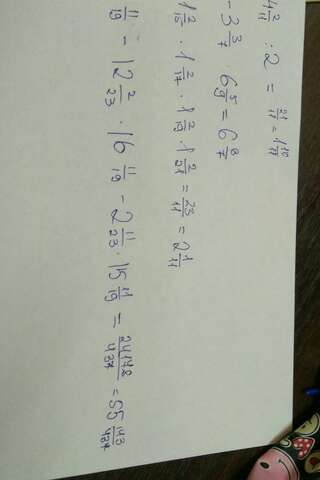 4 2/11 : 2 = 21/11 = 1 10/11
- 3 3/7 · 6 5/9 = 6 8/7
1 2/15 · 1 2/17 · 1 2/19 · 1 2/21 = 23/11 = 2 1/11
11/19 - 12 2/23 · 16 11/19 - 2 11/23 · 15 11/19 = 24148/437 = 55 113/437